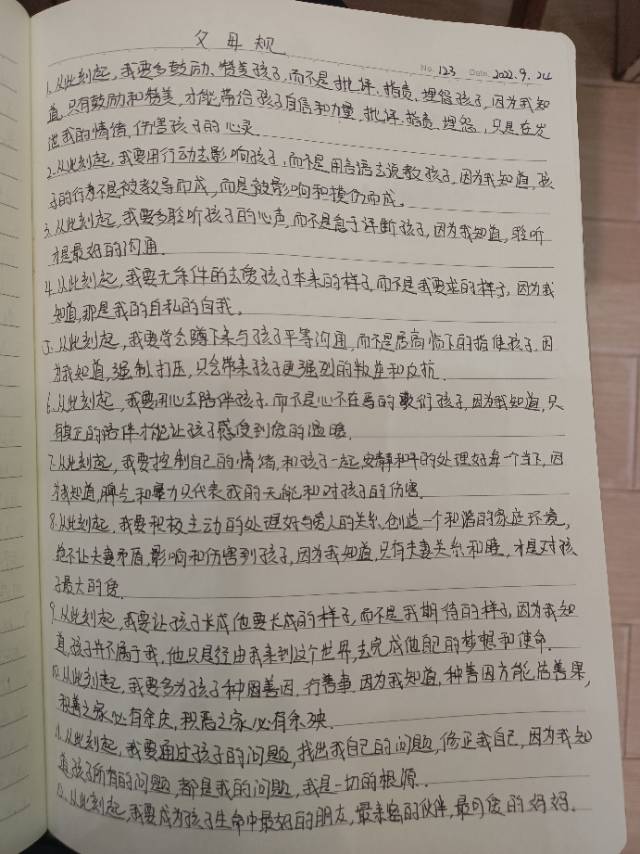 父母规
No. 123 Date. 2022.9.24
1.从此刻起,我要多鼓励、赞美孩子,而不是批评、指责、埋怨孩子,因为我知
道,只有鼓励和赞美,才能带给孩子自信和力量,批评、指责、埋怨,只是在发
泄我的情绪,伤害孩子的心灵
2.从此刻起,我要用行动去影响孩子,而不是用言语去说教孩子,因为我知道,孩
子的行为不是被教导而成,而是被影响和模仿而成。
3.从此刻起,我要多聆听孩子的心声,而不是急于评断孩子,因为我知道,聆听
才是最好的沟通.
4.从此刻起,我要无条件的去爱孩子本来的样子,而不是我要求的样子,因为我
知道,那是我的自私的自我。
5.从此刻起,我要学会蹲下来与孩子平等沟通,而不是居高临下的指使孩子,因
为我知道,强制打压,只会带来孩子更强烈的叛逆和反抗.
6.从此刻起,我要用心去陪伴孩子,而不是心不在焉的敷衍孩子,因为我知道,只
有真正的陪伴才能让孩子感受到爱的温暖.
7.从此刻起,我要控制自己的情绪,和孩子一起,安静和平的处理好每一个当下,因
为我知道,脾气和暴力只代表我的无能和对孩子的伤害.
8.从此刻起,我要积极主动的处理好与爱人的关系,创造一个和谐的家庭环境,
绝不让夫妻矛盾,影响和伤害到孩子,因为我知道,只有夫妻关系和睦,才是对孩
子最大的爱.
9.从此刻起,我要让孩子长成他要长成的样子,而不是我期待的样子,因为我知
道,孩子并不属于我,他只是经由我来到这个世界,去完成他自己的梦想和使命.
10.从此刻起,我要多为孩子种因善因,行善事,因为我知道,种善因方能结善果,
积善之家必有余庆,积恶之家必有余殃.
11.从此刻起,我要通过孩子的问题,找出我自己的问题,修正我自己,因为我知
道,孩子所有的问题,都是我的问题,我是一切的根源..
12.从此刻起,我要成为孩子生命中最好的朋友,最亲密的伙伴,最可爱的妈妈.